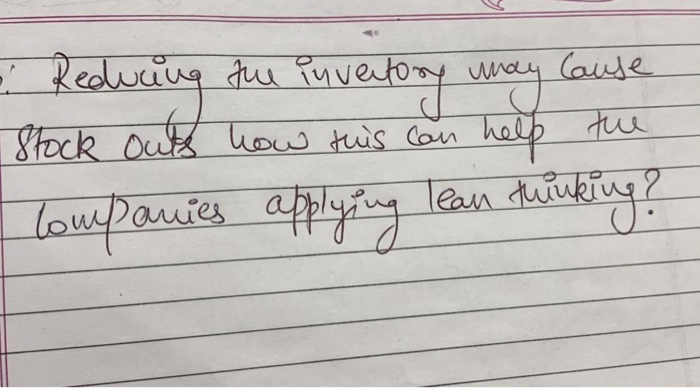 : Reducing the inventory may cause
Stock outs how this can help the
Companies applying lean thinking?